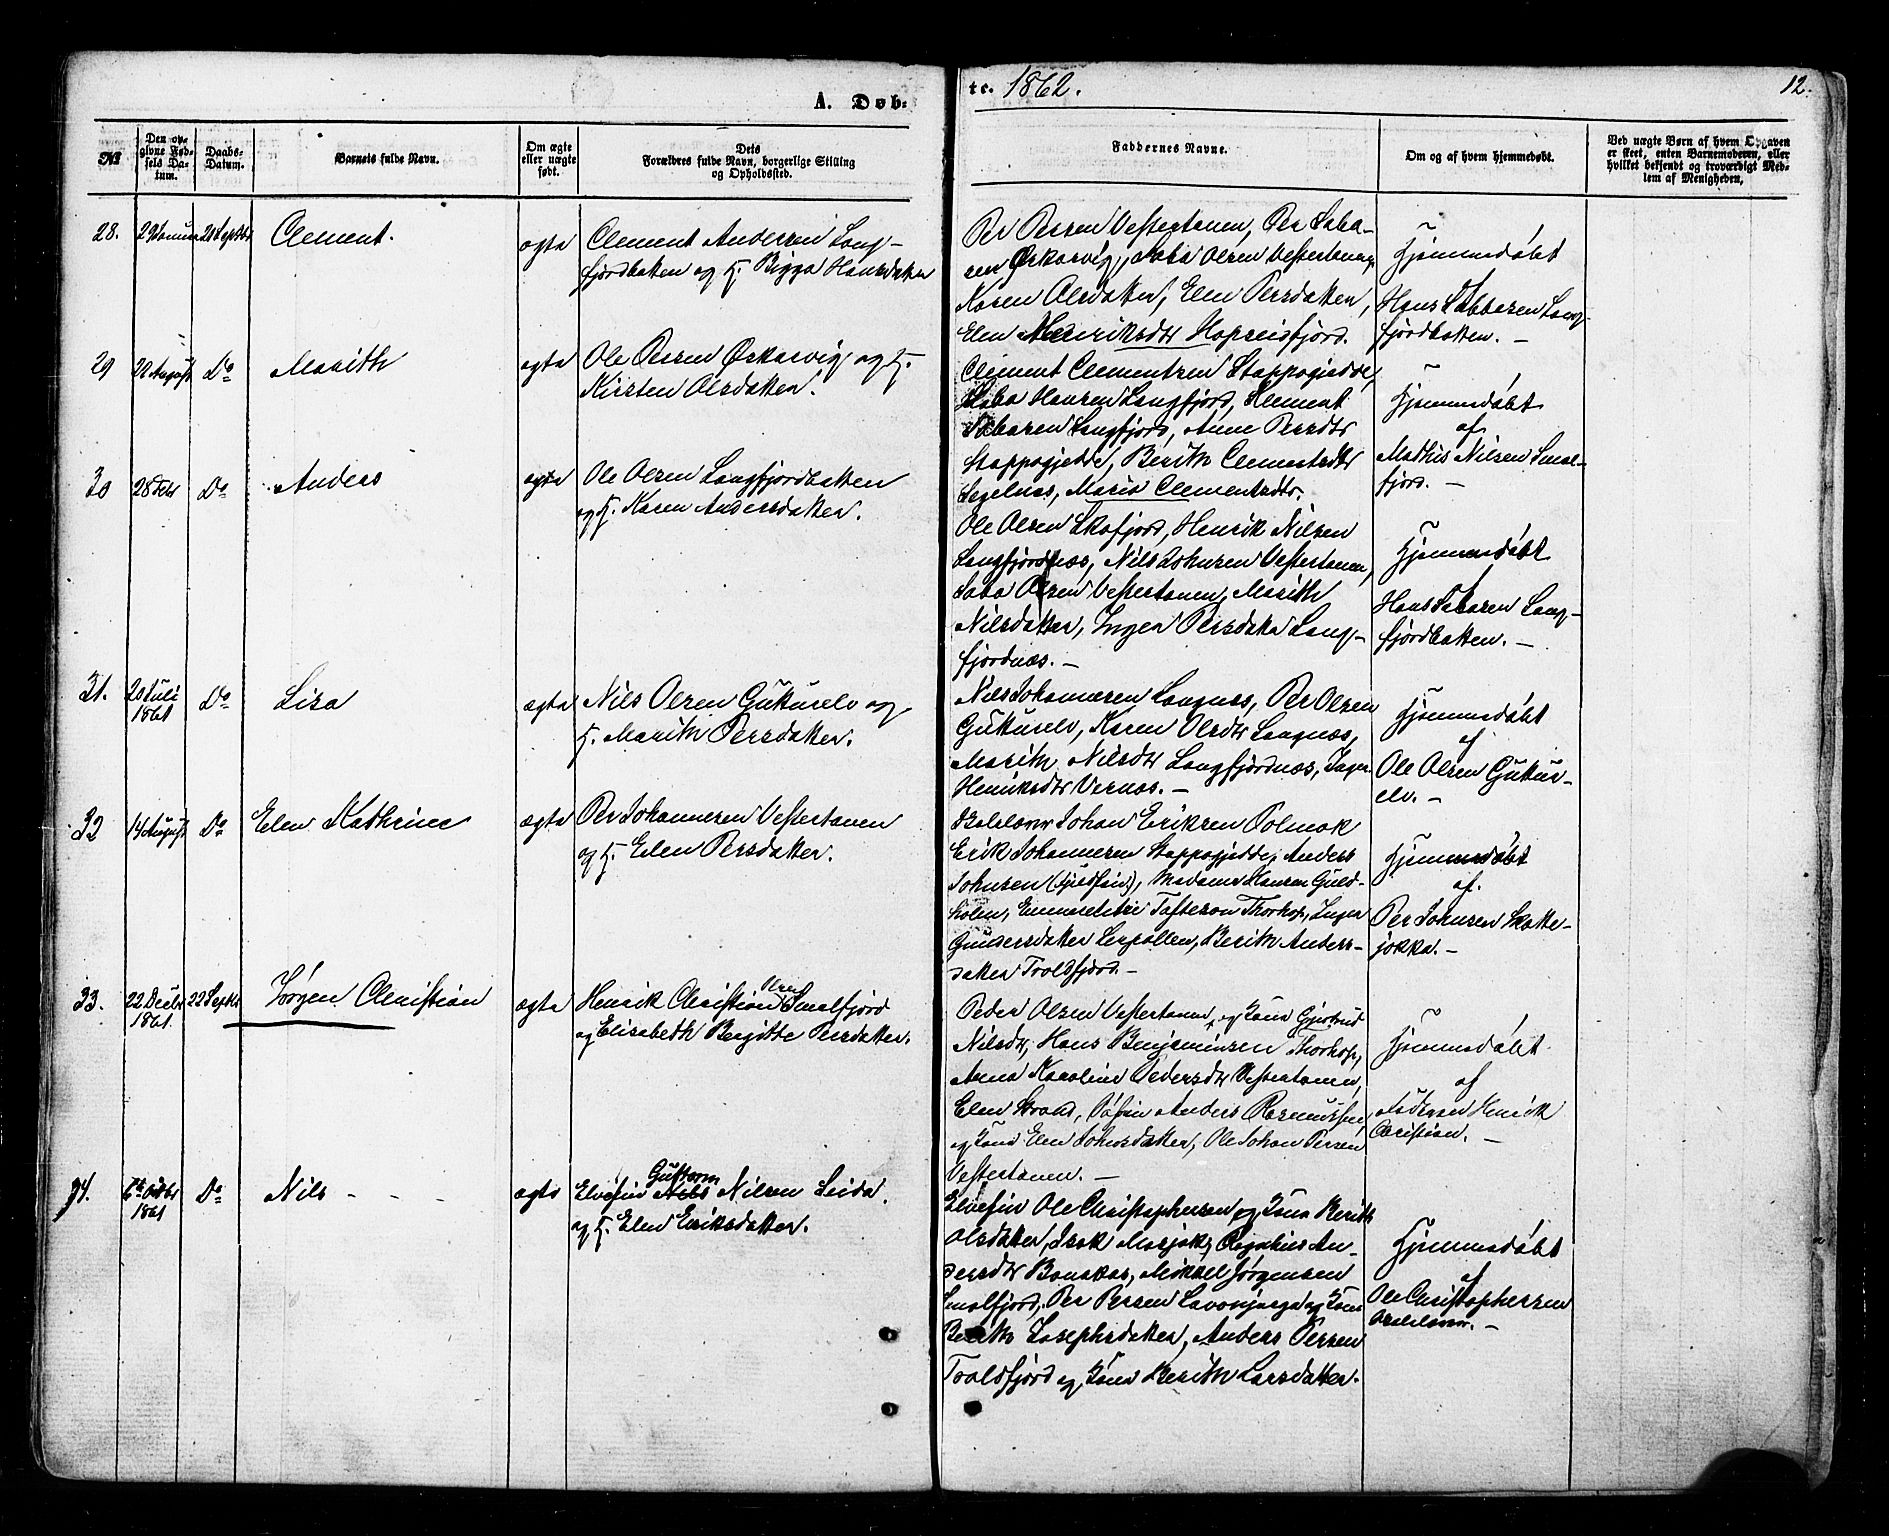 A. Døbte. 1862.
12.
No
Den opgivne Fødsels Datum.
Daabs-Datum.
Barnets fulde Navn.
Om ægte eller uægte født.
Dets Forældres fulde Navn, borgerlige Stilling og Opholdssted.
Faddernes Navne.
Om og af hvem hjemmedøbt.
Ved uægte Børn af hvem Opgaven er skeet, enten Barnemoderen, eller hvilket bekjendt og troværdigt Medlem af Menigheden.
28.
21 Septbr
Clement.
ægte
Clement Andersen Lang-
fjordbotten og H. Bigga Hansdatter
Per Persen Vestertanen, Per Saba-
sen Ørkarvig, Saba Olsen Vestertanen,
Karen Olsdatter, Elen Persdatter,
Elen Henriksdtr Hopseisfjord.
Hjemmedøbt
Hans Sabbasen Lang-
fjordbotten. —
29
21 August
Do
Marith
ægte
Ole Persen Ørkarvig og H.
Kirsten Olsdatter.
Clement Clementsen Stappogiedde,
Saba Hansen Langfjord, Clement
Sabasen Langfjord, Anne Persdtr
Stappogjedde, Berith Clementsdtr
Segelnæs, Maria Clementsdtr.
Hjemmedøbt
af
Mathis Nilsen Smal-
fjord. —
30
28 Febr
Do
Anders
ægte
Ole Olsen Langfjordbotten
og H. Karen Andersdatter.
Ole Olsen Skafjord, Henrik Nilsen
Langfjordnæs, Nils Johnsen Vestertanen,
Saba Olsen Vestertanen, Marith
Nilsdatter, Inger Persdatter Lang-
fjordnæs. —
Hjemmedøbt
Hans Sabasen Lang-
fjordbotten. —
31.
20 Juli
1861
Do
Lisa
ægte
Nils Olsen Gukkuelv og
H. Marith Persdatter.
Nils Johannesen Langnæs, Per Olsen
Gukkuelv, Karen Olsdtr Langnæs,
Marith Nilsdtr Langfjordnæs, Inger
Henriksdtr Vernæs. —
Hjemmedøbt
af
Ole Olsen Gukku-
elv. —
32
14 August
Do
Elen Kathrine
ægte
Per Johannesen Vestertanen
og H. Elen Persdatter.
Skolelærer Johan Eriksen Polmak
Erik Johannesen Stappogjedde, Anders
Johnsen (Fjeldfin), Madame Hansen Guld-
holm, Thorhop, Inger
Gundersdatter Leerpollen, Berith Anders-
datter Troldfjord. —
Hjemmedøbt
af.
Per Johnsen Skatte-
jokka. —
33.
22 Decbr
1861.
22 Septbr
Jørgen Christian
ægte
Henrik Christian Olsen Smalfjord
og Elisabeth Bergitte Persdatter.
Peder Olsen Vestertanen og Kone Gjertrud
Nilsdtr, Hans Benjaminsen Thorhop,
Anna Karoline Pedersdtr Vestertanen,
Elen Strand, Søfin Anders Rasmussen,
og Kone Elen Johnsdatter, Ole Johan Persen
Vestertanen. —
Hjemmedøbt
af
Faderen Henrik
Christian. —
34.
Octbr
1861
Do
Nils - - -
ægte
Elvefin Gustavn Nils Nilsen Seida.
og H. Elen Eriksdatter.
Elvefin Ole Christophersen og Kone Berith
Olsdatter, Isak Marjok, An-
dersdtr Bonakas, Mikkel Jørgensen
Smalfjord, Per Persen Lavonjarga og Kone
Berith Josephsdatter, Anders Persen
Troldfjord og Kone Berith Larsdatter.
Hjemmedøbt
af
Ole Christophersen
Skolelærer. —